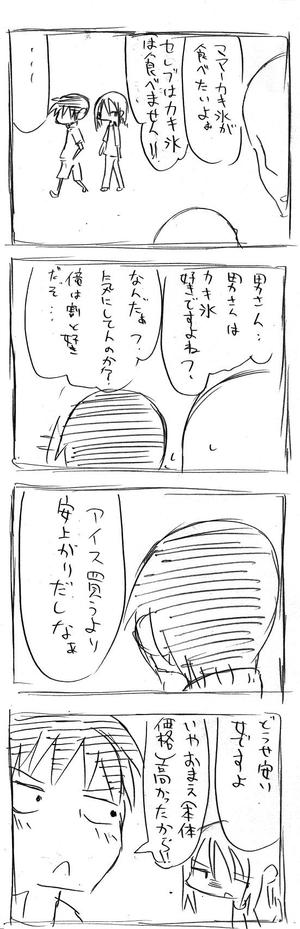 ママーカキ氷が
食べたいよぉ
セレブはカキ氷
は食べません!!
・・・
男さん…
男さんは
カキ氷
好きですよね?
なんだぁ?
気にしてんのか?
俺は割と好き
だぞ…
アイス買うより
安上がりだしなぁ
どうせ安い
女ですよ
いやおまえ(本体
価格)高かったから!?